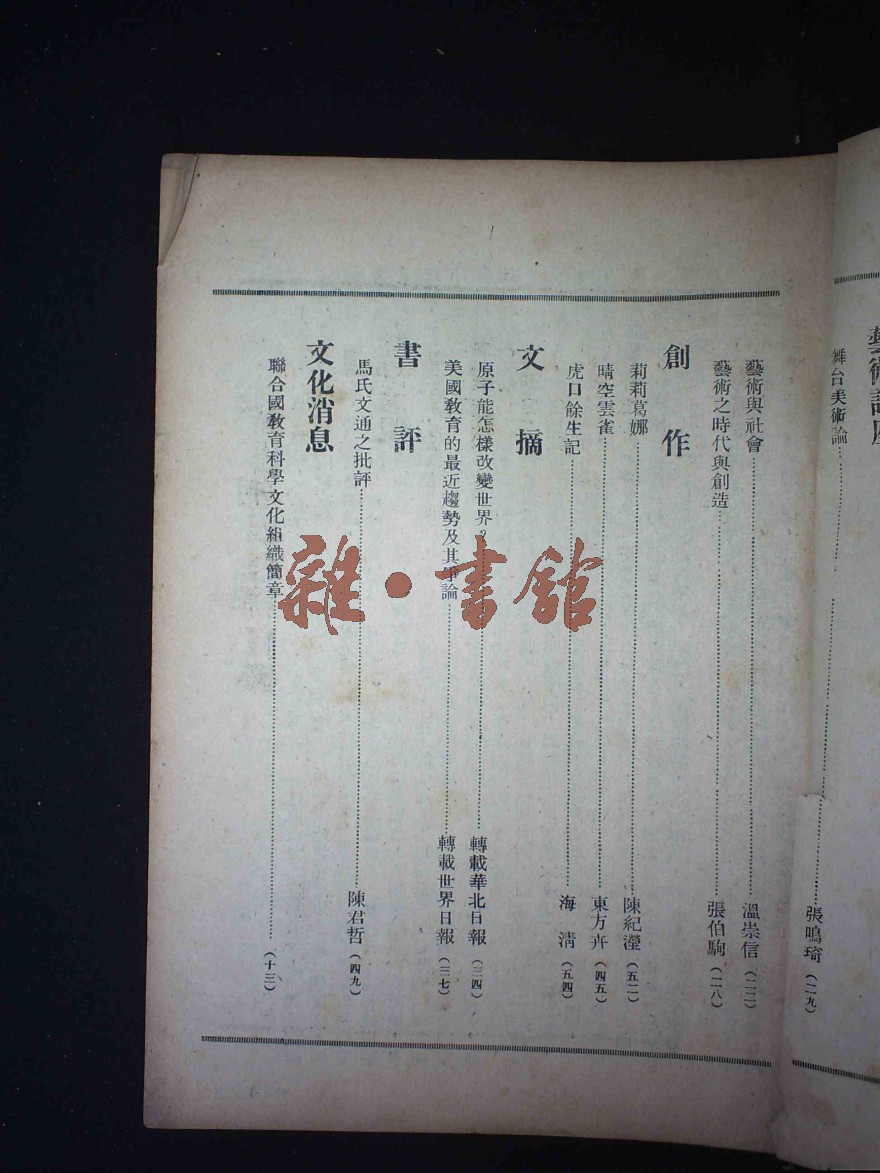 藝術講座
舞台美術論 張鳴琦（二九）
藝術與社會 溫崇信（二二）
藝術之時代與創造 張伯駒（二八）
創作
莉莉葛娜 陳紀瀅（五二）
晴空雲雀 東方卉（四五）
虎口餘生記 海清（五四）
文摘
原子能怎樣改變世界？ 轉載華北日報（三四）
美國教育的最近趨勢及其爭論 轉載世界日報（三七）
書評
馬氏文通之批評 陳君哲（四九）
文化消息
聯合國教育科學文化組織簡章（十三）
雜·書館